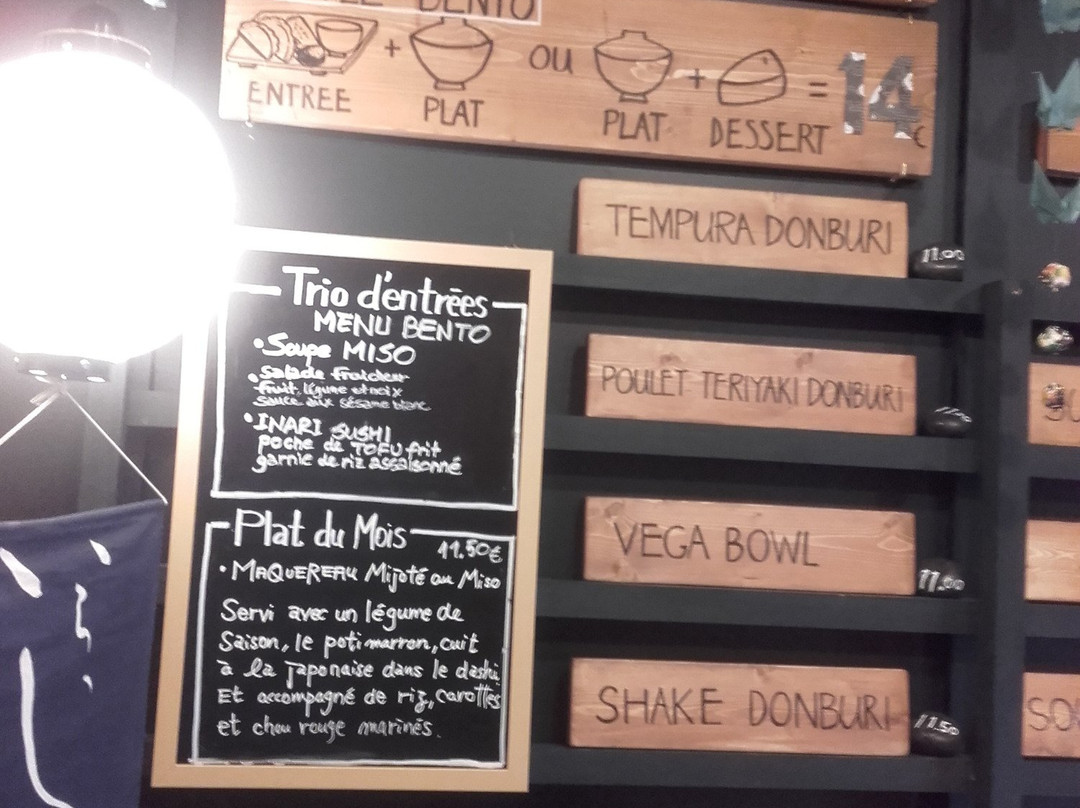 BENTO
ENTREE + PLAT OU PLAT + DESSERT = 14 €
TEMPURA DONBURI 11.00
POULET TERIYAKI DONBURI
VEGA BOWL 11.00
SHAKE DONBURI 11.50
Trio d'entrées
MENU BENTO
• Soupe MISO
• Salade fraicheur
fruit, légume et noix
sauce aux sésame blanc
• INARI SUSHI
poche de TOFU frit
garnie de riz assaisonné
Plat du Mois
11.50€
• MAQUEREAU Mijoté au Miso
Servi avec un légume de
Saison, le potimarron, cuit
à la japonaise dans le dashi
Et accompagné de riz, carottes
et chou rouge marinés.